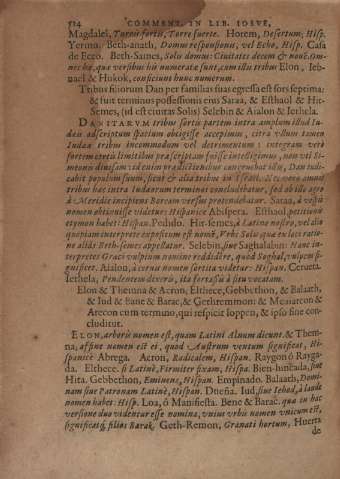 514 COMMENT. IN LIB. IOSVE,
Magdalel, Turris fortis, Torre fuerte. Horem, Desertum, Hisp.
Yermo. Beth-anath, Domus responsionis, vel Echo, Hisp. Casa
de Ecco. Beth-Sames, Solis domus: Ciuitates decem & nouē. Om-
nes hæ, quæ versibus his numeratæ sunt, cum illis tribus Elon, Ieh-
nael & Hukok, conficiunt hunc numerum.
Tribus filiorum Dan per familias suas egressa est sors septima:
& fuit terminus possessionis eius Saraa, & Esthaol & Hir-
Semes, (id est ciuitas Solis) Selebin & Aialon & Iethela.
DANITARVM tribus sortis partem intra amplum illud Iu-
dæis adscriptum spatium obtigisse accepimus, citra vllum tamen
Iudææ tribus incommodum vel detrimentum: integram verò
fortem certis limitibus præscriptam fuisse intelligimus, non vti Si-
meonis diuisam: vti etiam prædictionibus contenebat illa, Dan iudi-
cabit populum suum, sicut & alia tribus in Israel, & c. non omnis
tribus hæc intra Iudæorum terminos concludebatur, sed ab illo agro
à Meridie incipiens Boream versus protendebatur. Saraa, à vespis
nomen obtinuisse videtur: Hispanicè Abispera. Esthaol, petitionis
etymon habet: Hispan. Pedido. Hir-semes, à Latino nostro, vel alio
quopiam interprete expositum est nomē, Vrbs Solis quæ ex lata ratio-
ne aliàs Beth-semes appellatur. Selebin, siue Saghalabin: Hanc in-
terpretes Græci vulpium nomine reddidêre, quòd Saghal, vulpem si-
gnificet. Aialon, à ceruis nomen sortita videtur: Hispan. Cerueta.
Iethela, Pendentem diceres, ita fortassis à situ vocatam.
Elon & Themna & Acron, Elthece, Gebbethon, & Balaath,
& Iud & Bane & Barac, & Gethremmon: & Meiarcon &
Arecon cum termino, qui respicit Ioppen, & ipso fine con-
cluditur.
ELON, arboris nomen est, quam Latini Alnum dicunt. & Them-
na, affine nomen est ei, quod Austrum ventum significat, Hi-
spanicè Abrega. Acron, Radicalem, Hispan. Raygon ó Rayga-
da. Elthece. si Latinè, Firmiter fixam, Hispa. Bien-hincada, siue
Hita. Gebbethon, Eminens, Hispan. Empinado. Balaath, Domi-
nam siue Patronam Latinè, Hispan. Dueña. Iud, siue Iehod, à laude
nomen habet: Hisp. Loa, ó Manifiesta. Bene & Barac. quæ in hac
versione duo videntur esse nomina, vnius vrbis nomen vnicum est,
significatq́; filios Barak. Geth-Remon, Granati hortum, Huerta
de